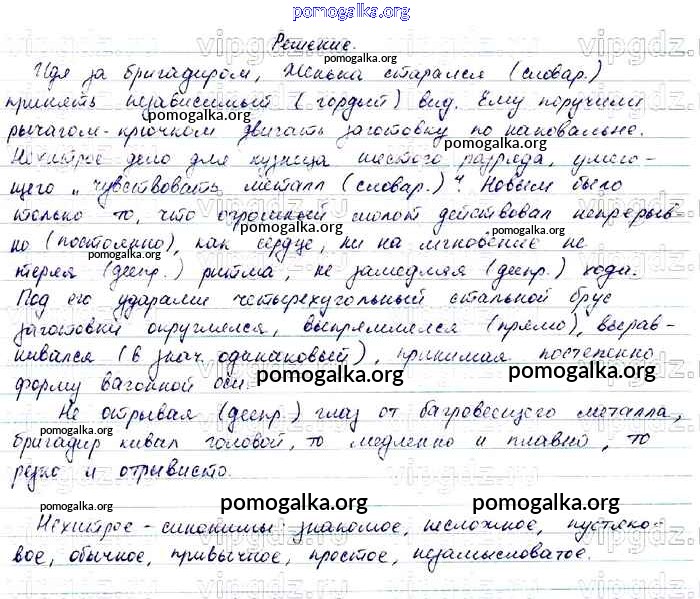 pomogalka.org
Решение.
Идя за бригадиром, Женька старался (словар.)
принять независимый (гордый) вид. Ему поручили
рычагом-крючком двигать заготовку по наковальне.
Нехитрое дело для кузнеца шестого разряда, умею-
щего „чувствовать металл (словар.)“. Новым было
только то, что огромный молот действовал непрерыв-
но (постоянно), как сердце, ни на мгновение не
теряя (деепр.) ритма, не замедляя (деепр.) хода.
Под его ударами четырехугольный стальной брус
заготовки округлялся, выпрямлялся (прямо), вырав-
нивался (в знач. одинаковый), принимая постепенно
форму вагонной оси.
Не отрывая (деепр.) глаз от багровеющего металла,
бригадир кивал головой, то медленно и плавно, то
резко и отрывисто.
Нехитрое - синонимы: знакомое, несложное, пустяко-
вое, обычное, привычное, простое, незамысловатое.